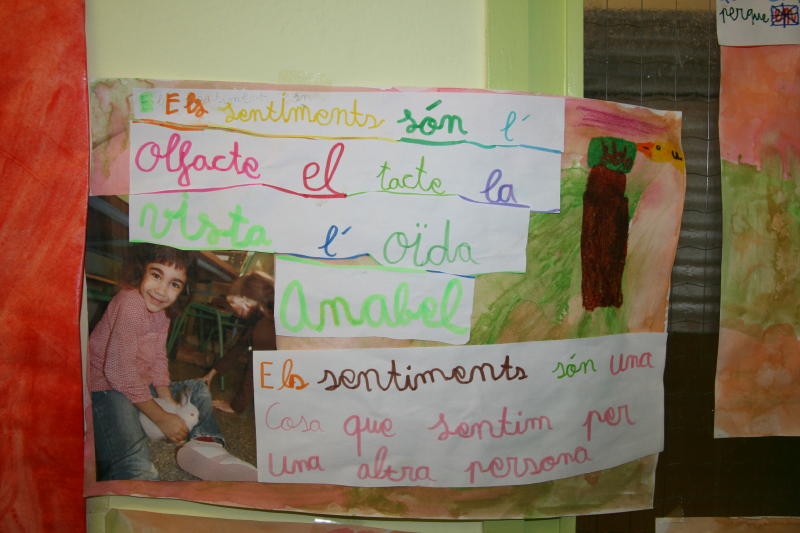 perque
E Els sentiments són l'
olfacte el tacte la
vista l' oïda
Anabel
Els sentiments són una
Cosa que sentim per
una altra persona